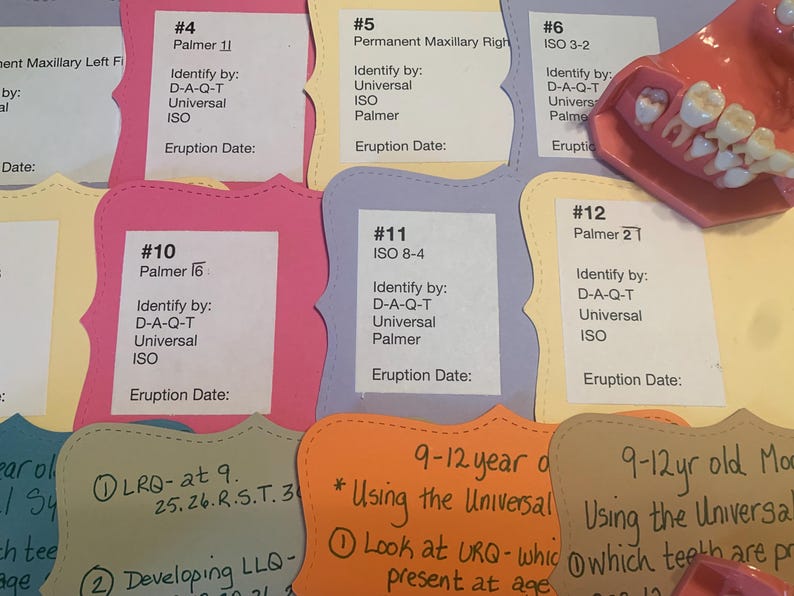 ent Maxillary Left Fi
by:
al
Date:
#4
Palmer 1⏌
Identify by:
D-A-Q-T
Universal
ISO
Eruption Date:
#5
Permanent Maxillary Righ
Identify by:
Universal
ISO
Palmer
Eruption Date:
#6
ISO 3-2
Identify by:
D-A-Q-T
Univers
Palme
Eruptic
#10
Palmer ⎾6
Identify by:
D-A-Q-T
Universal
ISO
Eruption Date:
#11
ISO 8-4
Identify by:
D-A-Q-T
Universal
Palmer
Eruption Date:
#12
Palmer 2⏋
Identify by:
D-A-Q-T
Universal
ISO
Eruption Date:
ear ol
l Sy
ch tee
age
① LRQ- at 9.
25.26.R.S.T. 3
② Developing LLQ-
9-12 year o
* Using the Universal
① Look at URQ- whic
present at age
9-12yr old Mo
Using the Universal
① which teeth are pr